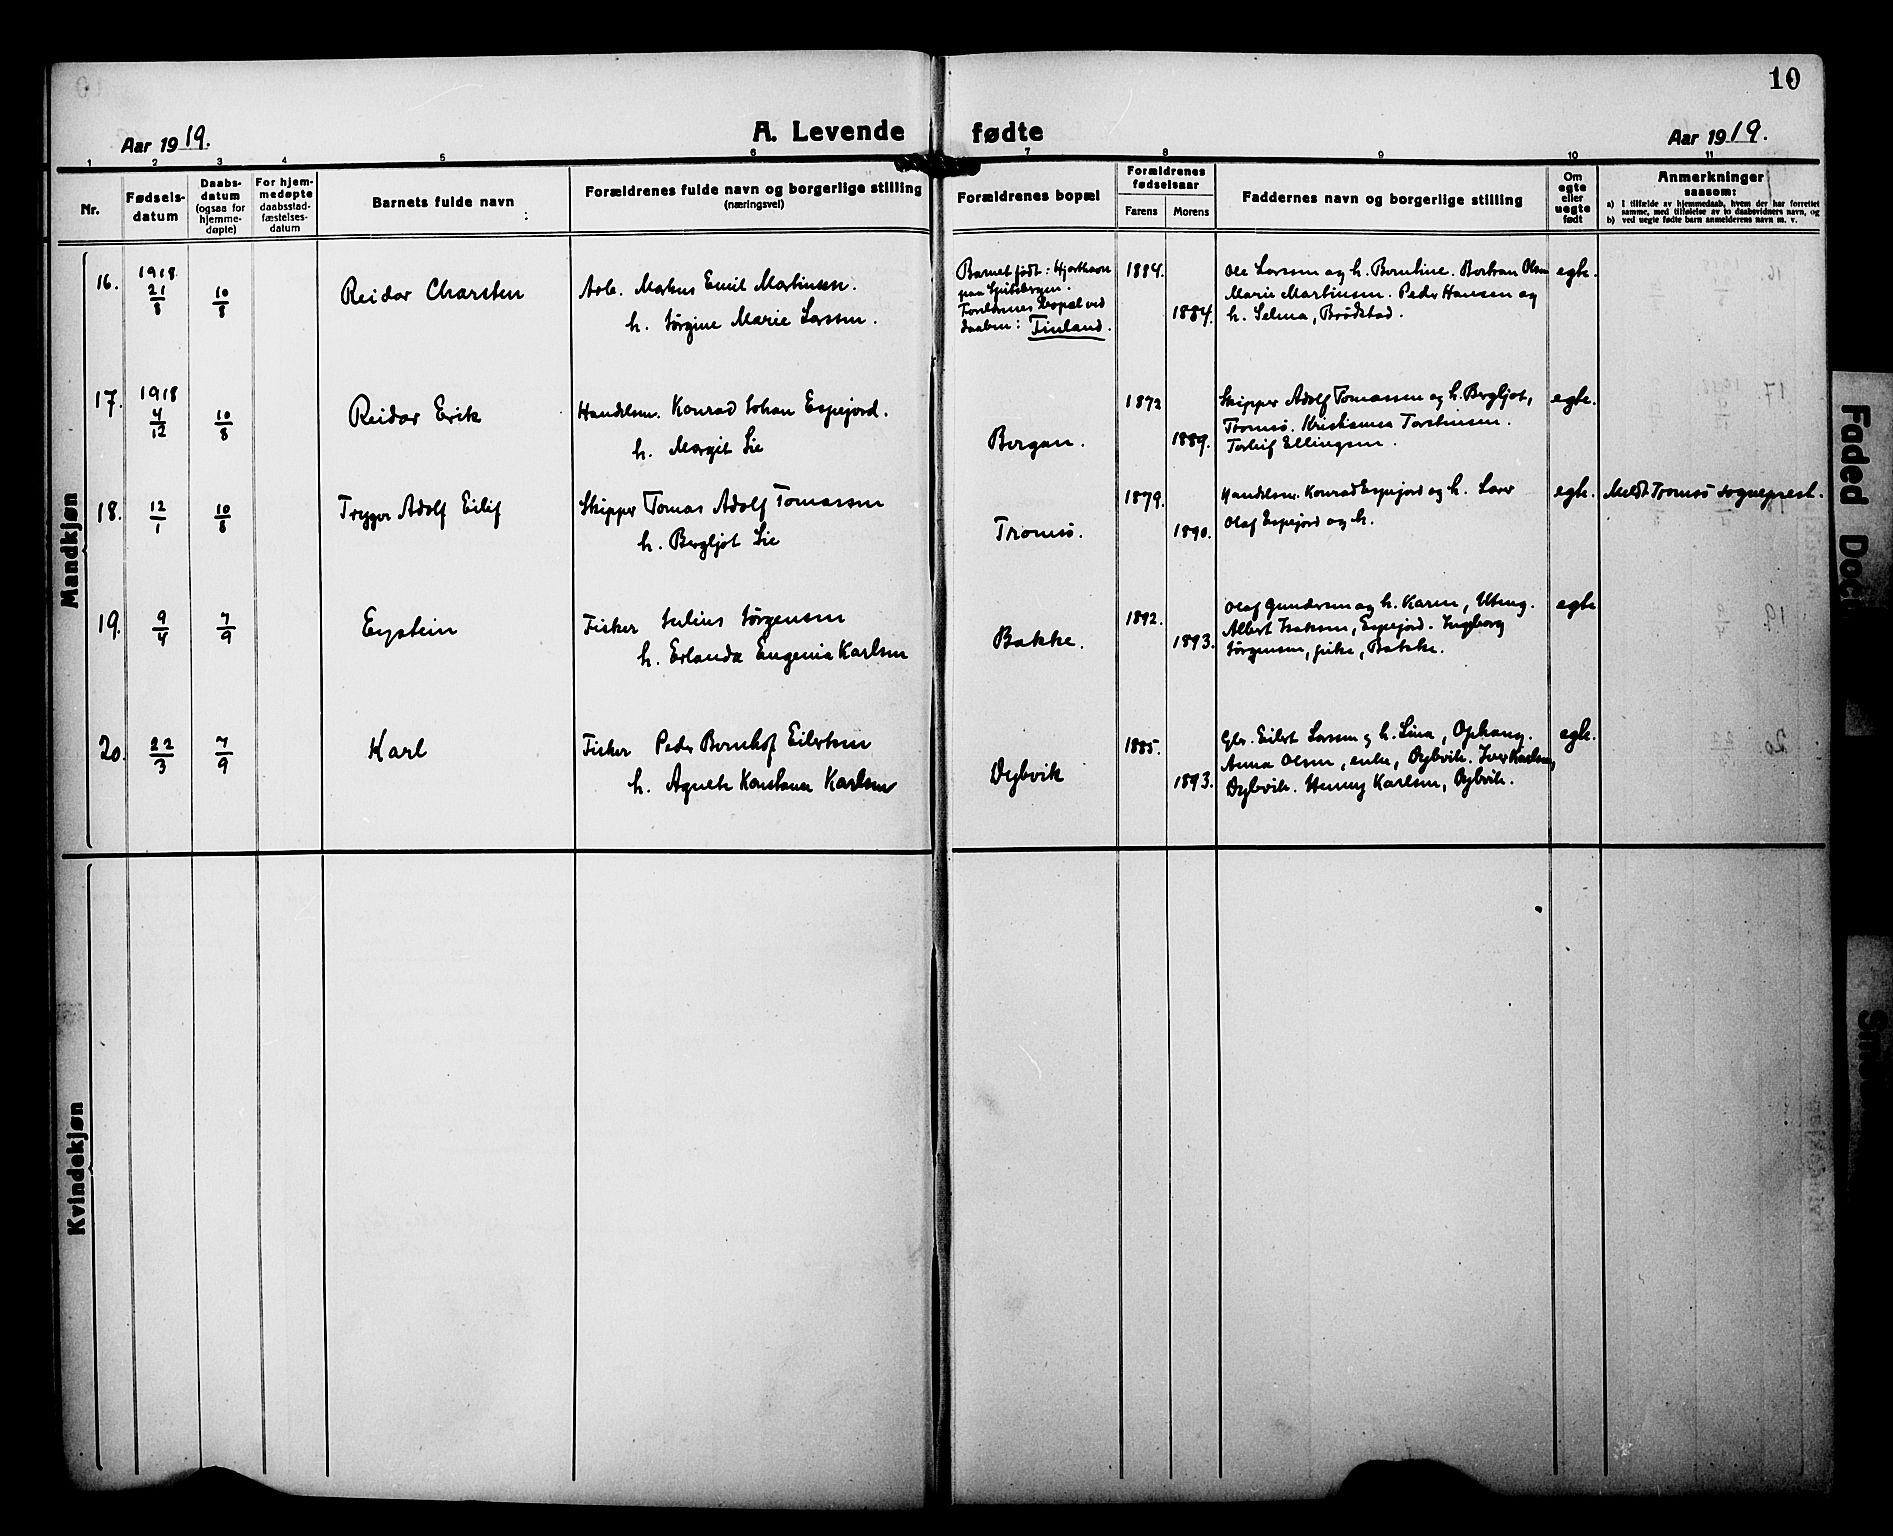 10
Aar 1919.
A. Levende fødte
Aar 1919.
1 2 3 4 5 6 7 8 9 10 11
Nr.
Fødsels-
datum
Daabs-
datum
(ogsaa for
hjemme-
døpte)
For hjem-
medøpte
daabsstad-
fæstelses-
datum
Barnets fulde navn
Forældrenes fulde navn og borgerlige stilling
(næringsvei)
Forældrenes bopæl
Forældrenes
fødselsaar
Farens Morens
Faddernes navn og borgerlige stilling
Om
egte
eller
uegte
født
Anmerkninger
saasom:
a) I tilfælde av hjemmedaab, hvem der har forrettet
samme, med tilføielse av to daabsvidners navn, og
b) ved uegte fødte barn anmelderens navn m. v.
Mandkjøn
16.
1918
21/8
10/8
Reidar Charsten
Arb. Markus Emil Martinsen.
h. Jørgine Marie Larssen.
Barnet født: Hjorthavn
paa Spitsbergen.
Foreldrenes bopæl ved
daaben: Finland.
1884.
1884.
Ole Larssen og h. Berntine. Olsen
Marie Martinsen. Peder Hansen og
h. Selma, Brödstad.
egte.
17.
1918
4/12
10/8
Reidar Erik
Handelsm. Konrad Johan Espejord.
h. Margit Lie
Bergan.
1872
1889.
Skipper Adolf Tomassen og h. Bergljot,
Tromsø. Torstensen.
Torleif Ellingsen.
egte.
18.
12/1
10/8
Trygve Adolf Eilif
Skipper Tomas Adolf Tomassen
h. Bergljot Lie
Tromsö.
1879.
1890.
Handelsm. Konrad Espejord og h.
Olaf Espejord og h.
egte.
Meldt Tromsö sogneprest.
19.
9/4
7/9
Eystein
Fisker Julius Jørgensen
h. Erlanda Eugenie Karlsen
Bakke.
1892.
1893.
Olaf Gundersen og h. Karen, Uteng.
Albert Isaksen, Espejord. Ingeborg
Jörgensen, pike, Bakke.
egte
20.
22/3
7/9
Karl
Fisker Peder Bernhof Eilertsen
h. Agnete Konstanse Karlsen
Dybvik
1885.
1893.
Gbr. Eilert Larssen og h. Lina, Ophaug.
Anna Olsen, enke, Dybvik. Iver Karlsen,
Dybvik. Henny Karlsen, Dybvik.
egte.
Kvindekjøn
Faded Doc